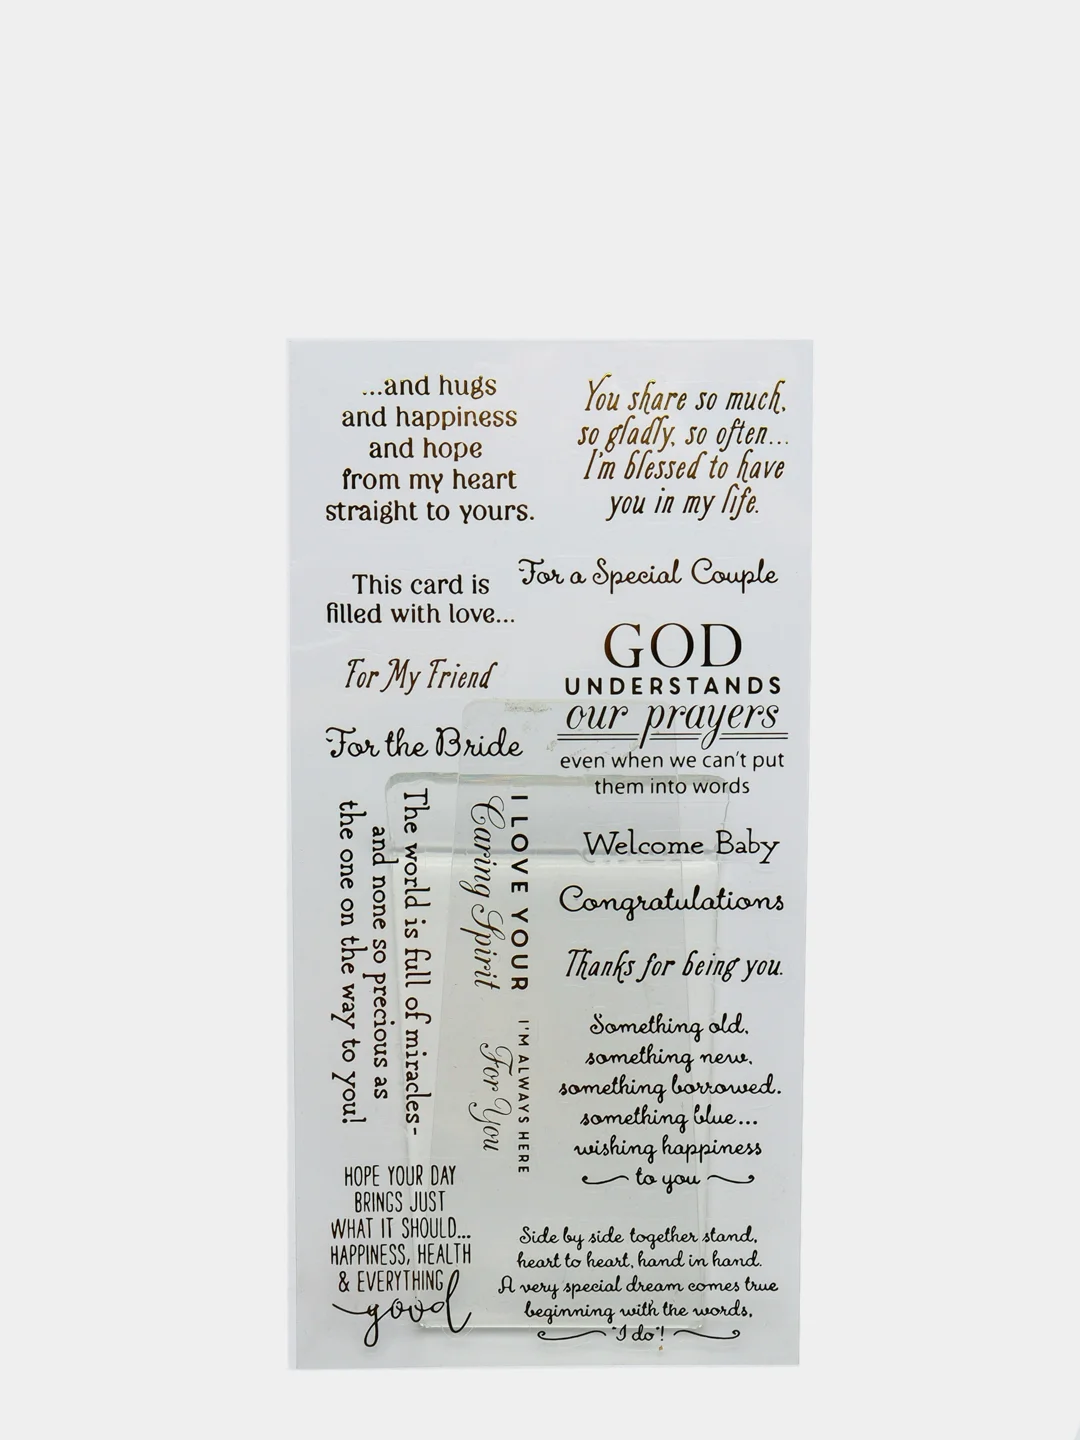 ...and hugs
and happiness
and hope
from my heart
straight to yours.
You share so much,
so gladly, so often...
I'm blessed to have
you in my life.
This card is
filled with love...
For a Special Couple
For My Friend
GOD
UNDERSTANDS
our prayers
even when we can't put
them into words
For the Bride
The world is full of miracles-
and none so precious as
the one on the way to you!
I LOVE YOUR
Caring Spirit
I'M ALWAYS HERE
For You
Welcome Baby
Congratulations
Thanks for being you.
Something old,
something new,
something borrowed,
something blue...
wishing happiness
to you
HOPE YOUR DAY
BRINGS JUST
WHAT IT SHOULD...
HAPPINESS, HEALTH
& EVERYTHING
good
Side by side together stand,
heart to heart, hand in hand.
A very special dream comes true
beginning with the words,
"I do"!